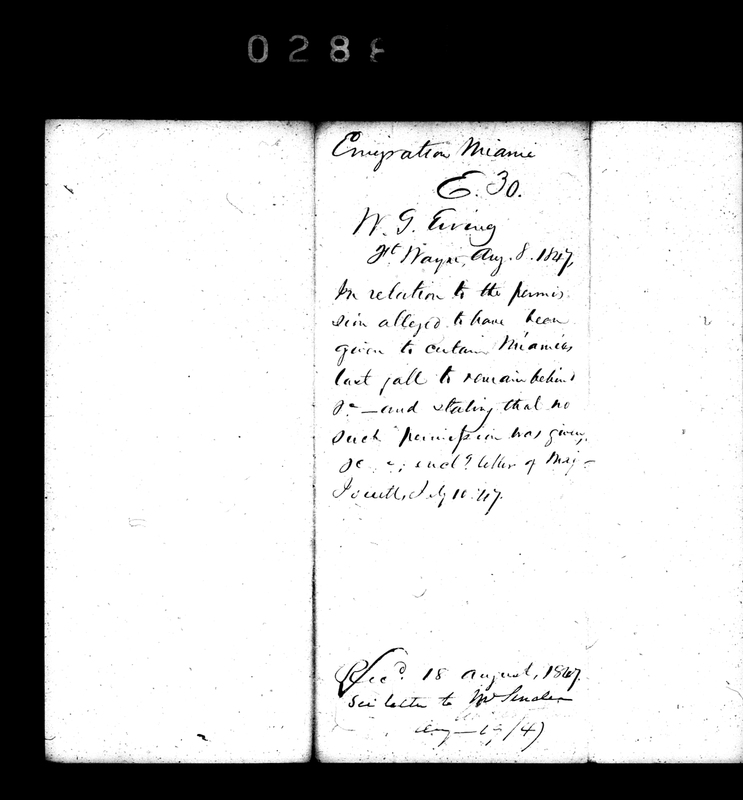 0288
Emigration Miami
E. 30.
W. G. Ewing
Ft. Wayne, Aug. 8. 1847,
In relation to the permis
sion alleged to have been
given to certain Miamies
last fall to remain behind
&c — and stating that no
such permission was given,
&c. encld. letter of Maj
July 10. 47.
Recd. 18 August, 1847.
See letter to Mr
Aug